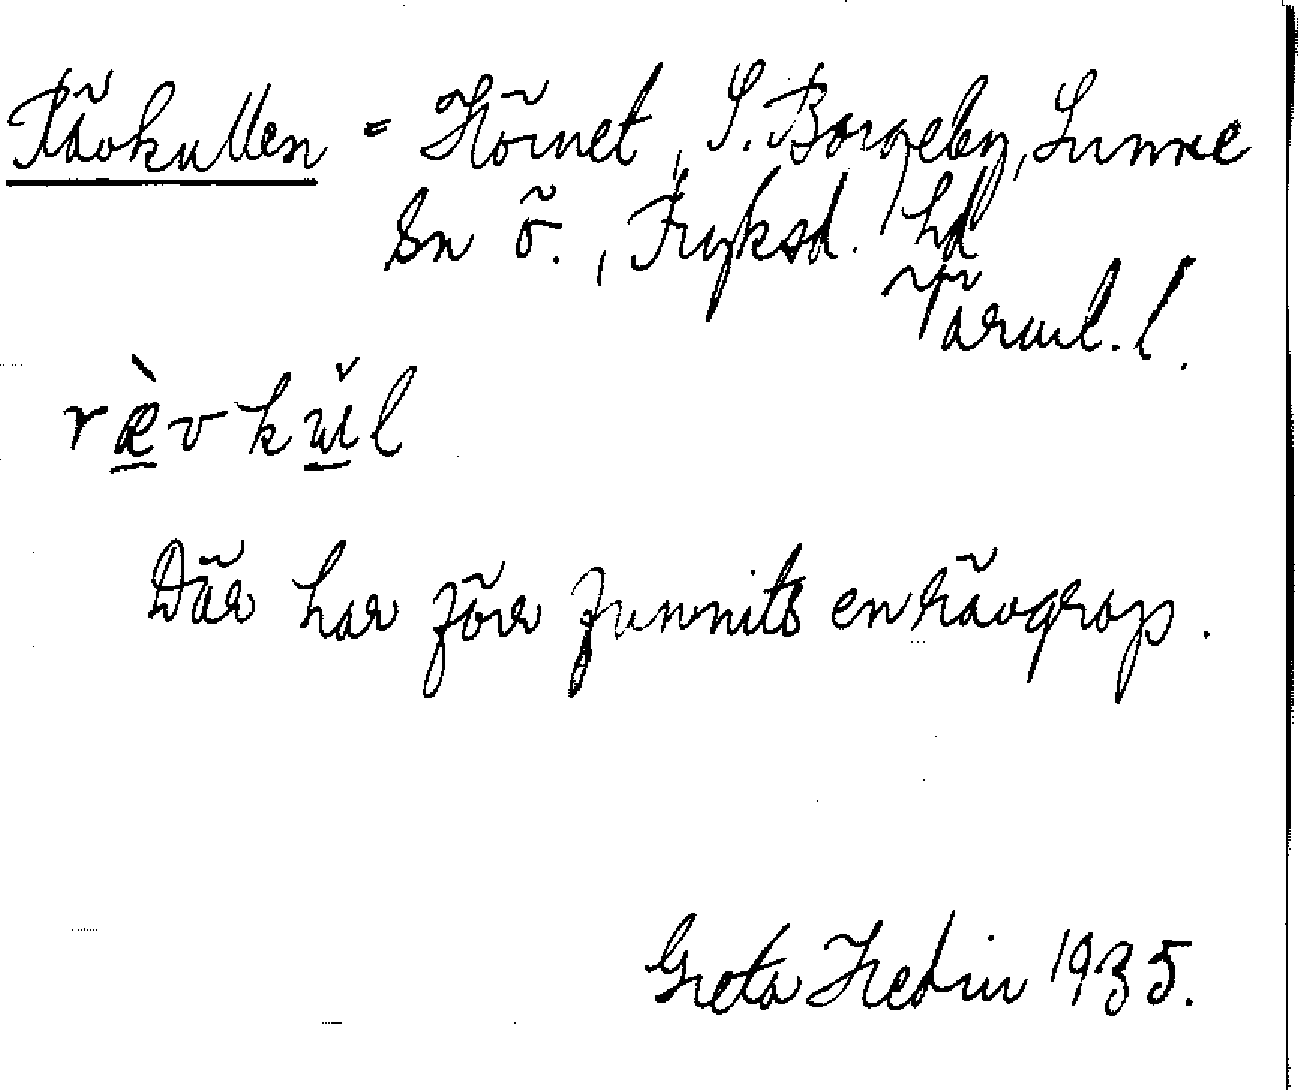 Rävkullen = Hörnet, S. Borgeby, Sunne
Sn ö., Fryksd. hd
Värml. l.
rævkul
Där har förr funnits en rävgrop.
Greta Hedin 1935.